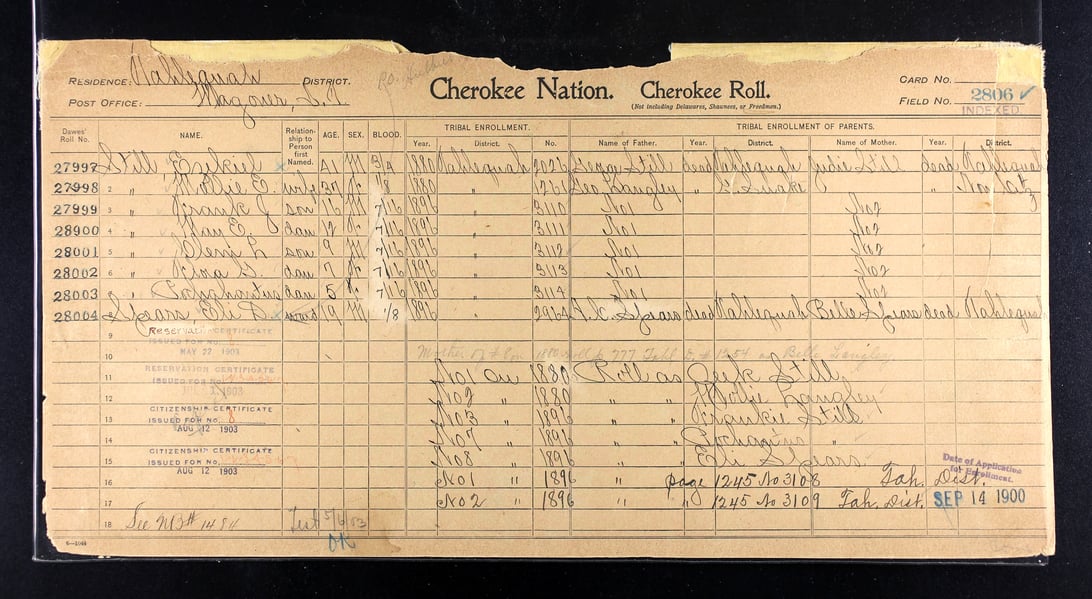 RESIDENCE: Tahlequah DISTRICT.
POST OFFICE: Wagoner, I.T.
Cherokee Nation. Cherokee Roll.
(Not including Delawares, Shawnees, or Freedmen.)
CARD NO.
FIELD NO. 2806
INDEXED
Dawes' Roll No. NAME. Relationship to Person first Named. AGE. SEX. BLOOD. TRIBAL ENROLLMENT. TRIBAL ENROLLMENT OF PARENTS.
Year. District. No. Name of Father. Year. District. Name of Mother. Year. District.
27997 Still, Ezekiel 41 M 3/4 1880 Tahlequah George Still dead Tahlequah Still dead Tahlequah
27998 2 " Mollie E. wife 37 F 1/8 1880 " 1261 Geo. Langley " G. Snake "
27999 3 " Frank J son 16 M 7/16 1896 " 3110 No1 No2
28900 4 " May E. dau 12 F 7/16 1896 " 3111 No1 No2
28001 5 " Clem L son 9 M 7/16 1896 " 3112 No1 No2
28002 6 " dau 7 F 7/16 1896 " 3113 No1 No2
28003 " Pochahontus dau 5 F 7/16 1896 " 3114 No1 No2
28004 Spears, Eli ward 19 M 1/8 1896 " 2964 A.K. Spears dead Tahlequah Belle Spears dead Tahlequah
9 Reservation CERTIFICATE
ISSUED FOR NO.
10 MAY 22 1903 Mother of on 1880 roll 777 Tahl as Belle Langley
11 RESERVATION CERTIFICATE No1 on 1880 Roll as Zeek Still
ISSUED FOR NO.
12 1903 No2 " 1880 " " Mollie Langley
13 CITIZENSHIP CERTIFICATE No3 " 1896 " " Frankie Still
ISSUED FOR NO. 8
14 AUG 12 1903 No7 " 1896 " " "
15 CITIZENSHIP CERTIFICATE No8 " 1896 " " Eli Spears
ISSUED FOR NO.
16 AUG 12 1903 No1 " 1896 " page 1245 No 3108 Tah. Dist.
17 No2 " 1896 " " 1245 No 3109 Tah. Dist.
Date of Application for Enrollment.
SEP 14 1900
18 See NB# 1484
OK